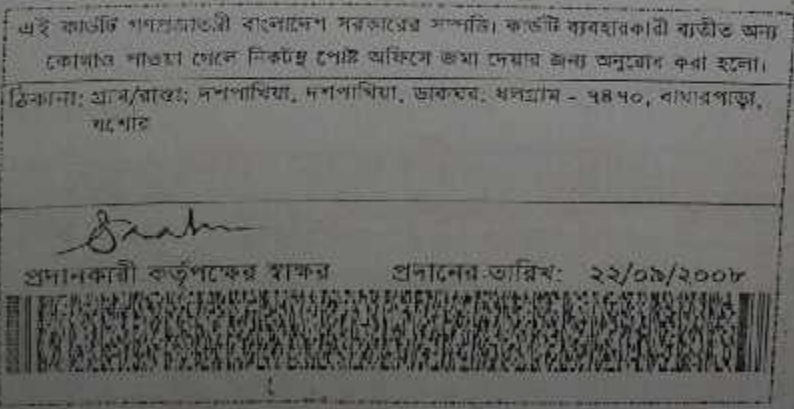 এই কার্ডটি গণপ্রজাতন্ত্রী বাংলাদেশ সরকারের সম্পত্তি। কার্ডটি ব্যবহারকারী ব্যতীত অন্য
কোথাও পাওয়া গেলে নিকটস্থ পোষ্ট অফিসে জমা দেয়ার জন্য অনুরোধ করা হলো।
ঠিকানা: গ্রাম/রাস্তা: দশপাখিয়া, দশপাখিয়া, ডাকঘর: ধলগ্রাম - ৭৪৭০, বাঘারপাড়া,
যশোর
প্রদানকারী কর্তৃপক্ষের স্বাক্ষর প্রদানের তারিখ: ২২/০৯/২০০৮